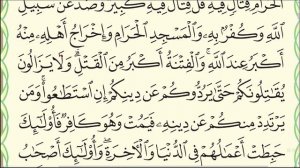 الْحَرَامِ قِتَالٍ فِيهِ قُلْ قِتَالٌ فِيهِ كَبِيرٌ وَصَدٌّ عَن سَبِيلِ
اللَّهِ وَكُفْرٌ بِهِ وَالْمَسْجِدِ الْحَرَامِ وَإِخْرَاجُ أَهْلِهِ مِنْهُ
أَكْبَرُ عِندَ اللَّهِ وَالْفِتْنَةُ أَكْبَرُ مِنَ الْقَتْلِ وَلَا يَزَالُونَ
يُقَاتِلُونَكُمْ حَتَّى يَرُدُّوكُمْ عَن دِينِكُمْ إِنِ اسْتَطَاعُوا وَمَن
يَرْتَدِدْ مِنكُمْ عَن دِينِهِ فَيَمُتْ وَهُوَ كَافِرٌ فَأُولَئِكَ
حَبِطَتْ أَعْمَالُهُمْ فِي الدُّنْيَا وَالْآخِرَةِ وَأُولَئِكَ أَصْحَابُ